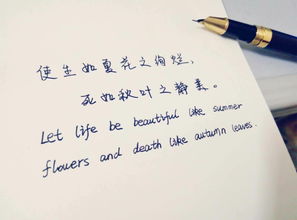 使生如夏花之绚烂，
死如秋叶之静美。
Let life be beautiful like summer
flowers and death like autumn leaves.